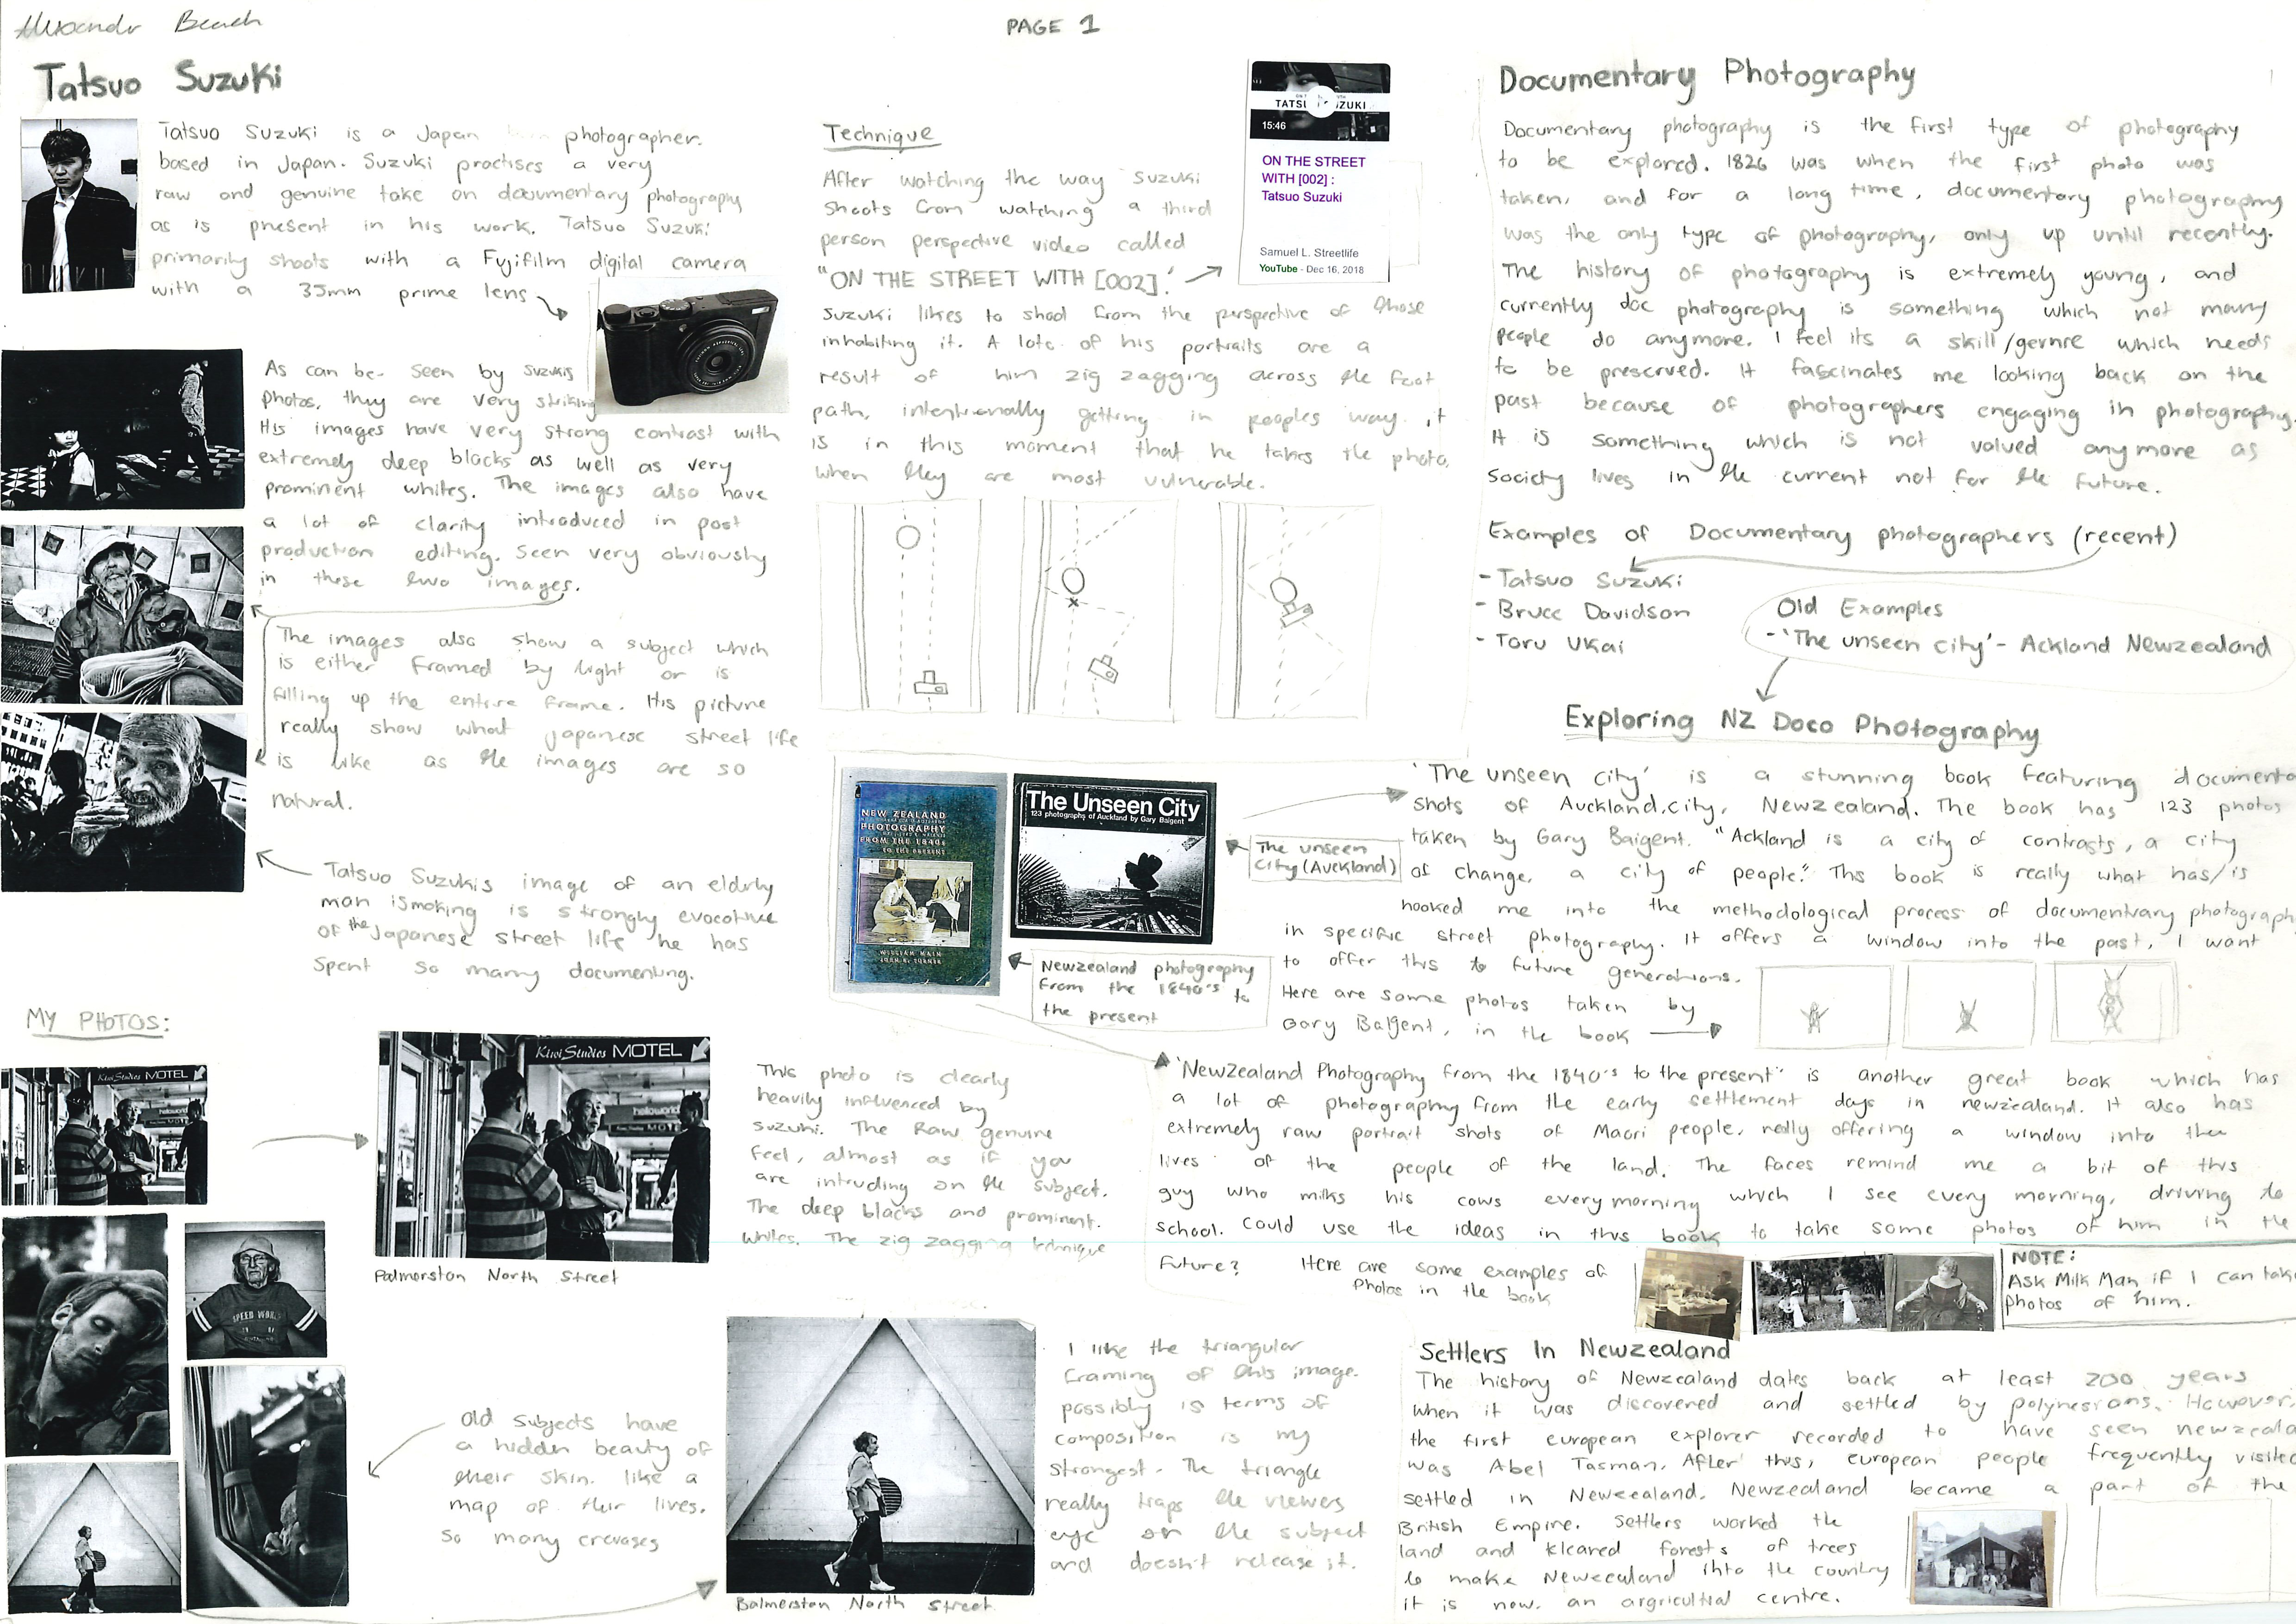 Beach
PAGE 1
Tatsuo Suzuki
Tatsuo Suzuki is a Japan born photographer.
based in Japan. Suzuki practises a very
raw and genuine take on documentary photography
as is present in his work. Tatsuo Suzuki
primarily shoots with a Fujifilm digital camera
with a 35mm prime lens
As can be seen by suzukis
photos, they are very striking
His images have very strong contrast with
extremely deep blacks as well as very
prominent whites. The images also have
a lot of clarity introduced in post
production editing. Seen very obviously
in these two images.
The images also show a subject which
is either framed by light or is
filling up the entire frame. His picture
really show what japanese street life
is like as the images are so
natural.
Tatsuo Suzukis image of an elderly
man ismoking is strongly evocative
of the Japanese street life he has
spent so many documenting.
MY PHOTOS:
Kiwi Studios MOTEL
helloworld
Kiwi Studios MOTEL
helloworld
Palmerston North Street
This photo is clearly
heavily influenced by
suzuki. The Raw genuine
feel, almost as if you
are intruding on the subject.
The deep blacks and prominent
whites. The zig zagging tehnique
SPEED WORLD
Old subjects have
a hidden beauty of
their skin. like a
map of their lives.
So many crevases
Balmerston North Street
I like the triangular
framing of this image.
possibly is terms of
composition is my
strongest. The triangle
really traps the viewers
eye on the subject
and doesn't release it.
Technique
After watching the way suzuki
shoots from watching a third
person perspective video called
"ON THE STREET WITH [002]'
TATSUO SUZUKI
15:46
ON THE STREET
WITH [002] :
Tatsuo Suzuki
Samuel L. Streetlife
YouTube - Dec 16, 2018
suzuki likes to shoot from the perspective of those
inhabiting it. A lote of his portraits are a
result of him zig zagging across the foot
path, intentionally getting in peoples way. it
is in this moment that he takes the photo,
when they are most vulnerable.
NEW ZEALAND
PHOTOGRAPHY
FROM THE 1840s
TO THE PRESENT
WILLIAM MAIN
JOHN B. TURNER
The Unseen City
123 photographs of Auckland by Gary Baigent
The unseen
City (Auckland)
Newzealand photography
from the 1840's to
the present
Documentary Photography
Documentary photography is the first type of photography
to be explored. 1826 was when the first photo was
taken, and for a long time, documentary photography
was the only type of photography, only up until recently.
The history of photography is extremely young, and
currently doc photography is something which not many
people do anymore. I feel its a skill/gernre which needs
to be preserved. It fascinates me looking back on the
past because of photographers engaging in photography.
It is something which is not valued anymore as
society lives in the current not for the future.
Examples of Documentary photographers (recent)
- Tatsuo Suzuki
- Bruce Davidson
- Toru Ukai
Old Examples
- 'The unseen city' - Ackland Newzealand
Exploring NZ Doco Photography
'The unseen city' is a stunning book featuring documenta
shots of Auckland.city, Newzealand. The book has 123 photos
taken by Gary Baigent. "Ackland is a city of contrasts, a city
of change, a city of people." This book is really what has/is
hooked me into the methodological process of documentary photograph
in specific street photography. It offers a window into the past, I want
to offer this to future generations.
Here are some photos taken by
Gary Baigent, in the book
'Newzealand Photography from the 1840's to the present" is another great book which has
a lot of photography from the early settlement days in newzealand. It also has
extremely raw portrait shots of Maori people, really offering a window into the
lives of the people of the land. The faces remind me a bit of this
guy who milks his cows every morning which I see every morning, driving to
school. Could use the ideas in this book to take some photos of him in the
future? Here are some examples of
Photos in the book
NOTE:
Ask Milk Man if I can take
photos of him.
Settlers In Newzealand
The history of Newzealand dates back at least 200 years
when it was discovered and settled by polynesians. However,
the first european explorer recorded to have seen newzeala
was Abel Tasman. After this, european people frequently visited
settled in Newzealand. Newzealand became a part of the
British Empire. Settlers worked the
land and kleared forests of trees
to make Newzealand into the country
it is now. an argricultral centre.